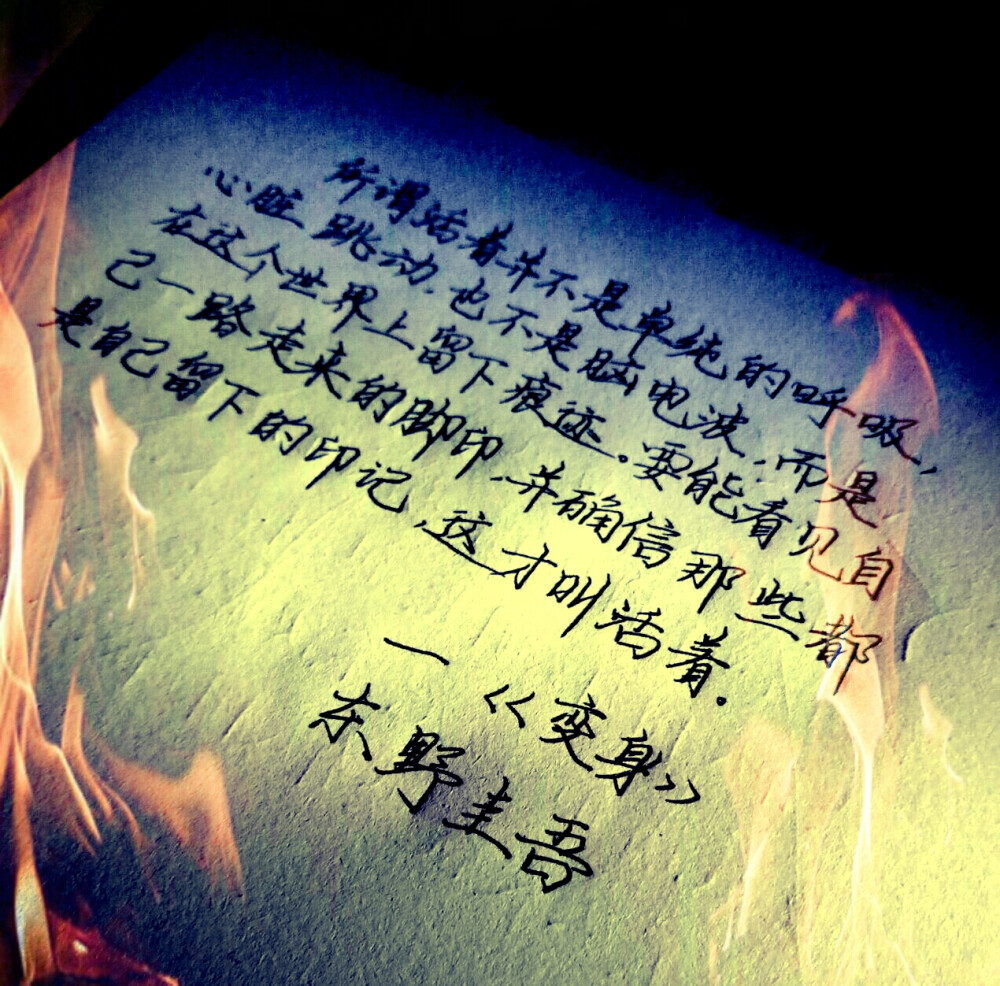 所谓活着并不是单纯的呼吸，
心脏跳动，也不是脑电波；而是
在这个世界上留下痕迹。要能看见自
己一路走来的脚印，并确信那些都
是自己留下的印记，这才叫活着。
—《变身》
东野圭吾